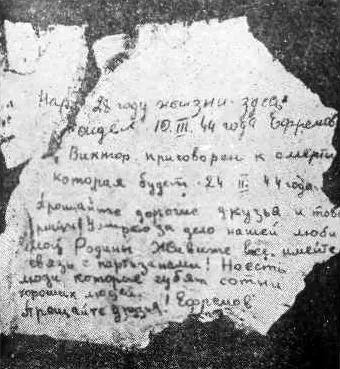 На 28 году жизни здесь
сидел 10.III.44 года Ефремов
Виктор. приговорен к смерти
которая будет 24 III. 44 года.
Прощайте дорогие друзья и това
рищи! Умираю за дело нашей люби
мой Родины. Живите все, имейте
связи с партизанами! Но есть
люди которые губят сотни
хороших людей.
Прощайте друзья! Ефремов